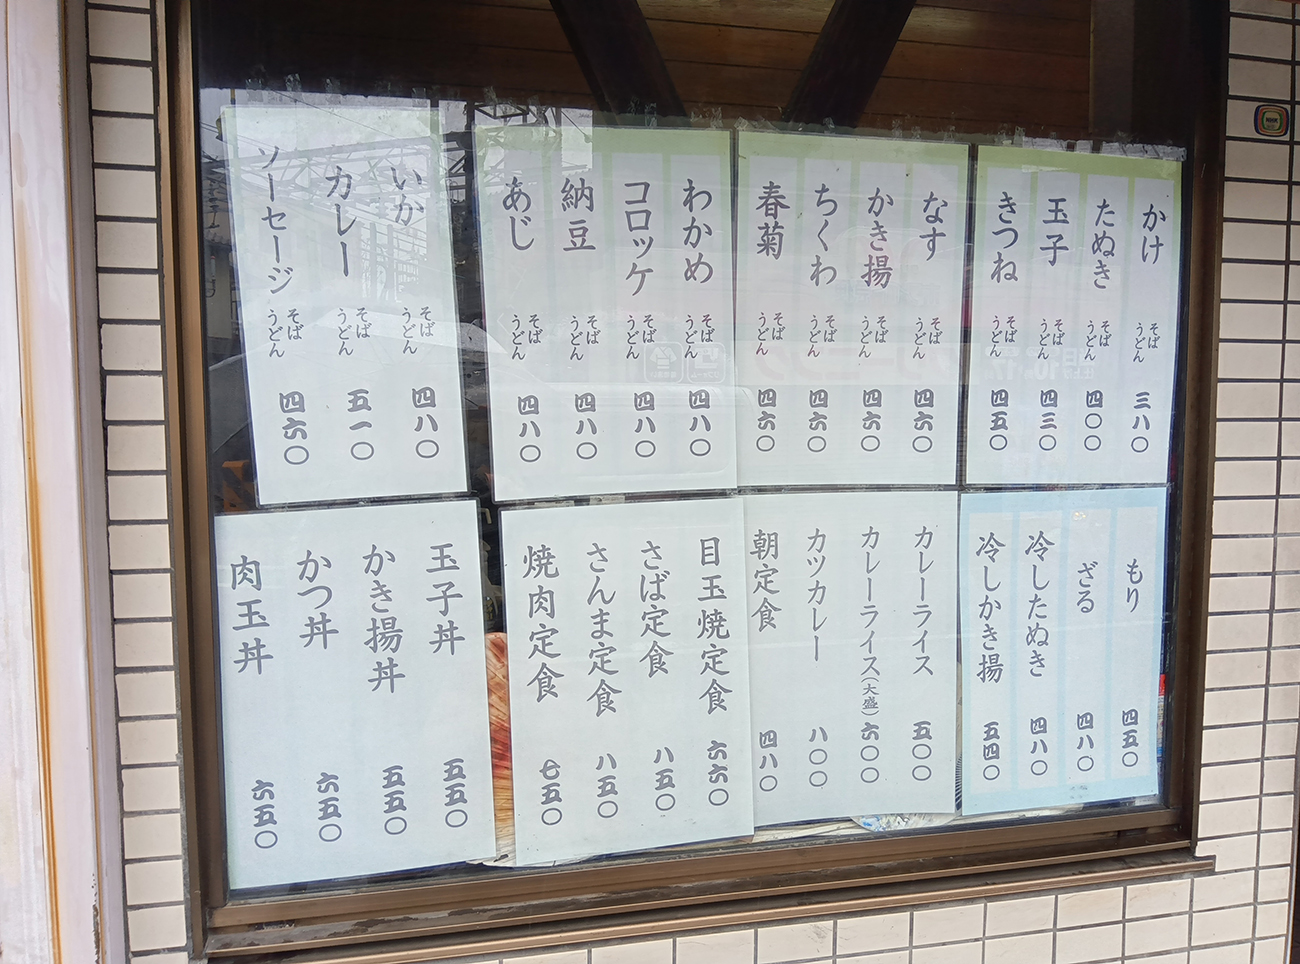 かけ そば うどん 三八〇
たぬき そば うどん 四〇〇
玉子 そば うどん 四三〇
きつね そば うどん 四五〇
なす そば うどん 四六〇
かき揚 そば うどん 四六〇
ちくわ そば うどん 四六〇
春菊 そば うどん 四六〇
わかめ そば うどん 四八〇
コロッケ そば うどん 四八〇
納豆 そば うどん 四八〇
あじ そば うどん 四八〇
いか そば うどん 四八〇
カレー そば うどん 五一〇
ソーセージ そば うどん 四六〇
もり 四五〇
ざる 四八〇
冷したぬき 四八〇
冷しかき揚 五四〇
カレーライス 五〇〇
カレーライス(大盛) 六〇〇
カツカレー 八〇〇
朝定食 四八〇
目玉焼定食 六六〇
さば定食 八五〇
さんま定食 八五〇
焼肉定食 七五〇
玉子丼 五五〇
かき揚丼 五五〇
かつ丼 六五〇
肉玉丼 六五〇
NHK